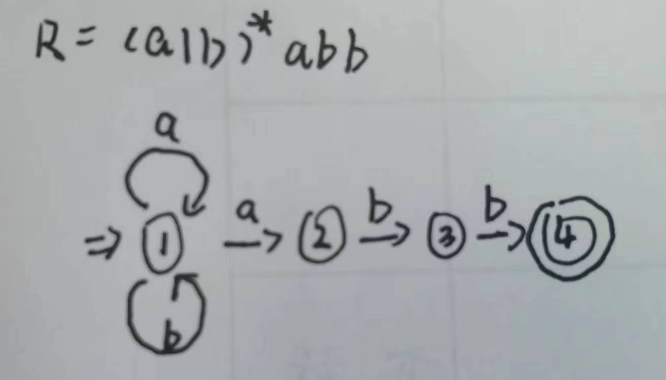 R = (a|b)* abb
a
⇒ 1 a → 2 b → 3 b → 4
b